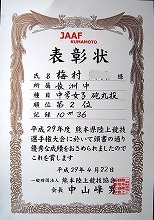 JAAF
KUMAMOTO
表彰状
氏名 梅村 様
所属 長洲中
種目 中学女子 砲丸投
順位 第2位
記録 10m36
平成29年度 熊本県陸上競技
選手権大会に於いて頭書の通り
優秀な成績をおさめられましたので
これを賞します
平成29年4月22日
一般財団法人 熊本陸上競技協会
会長 中山峰男